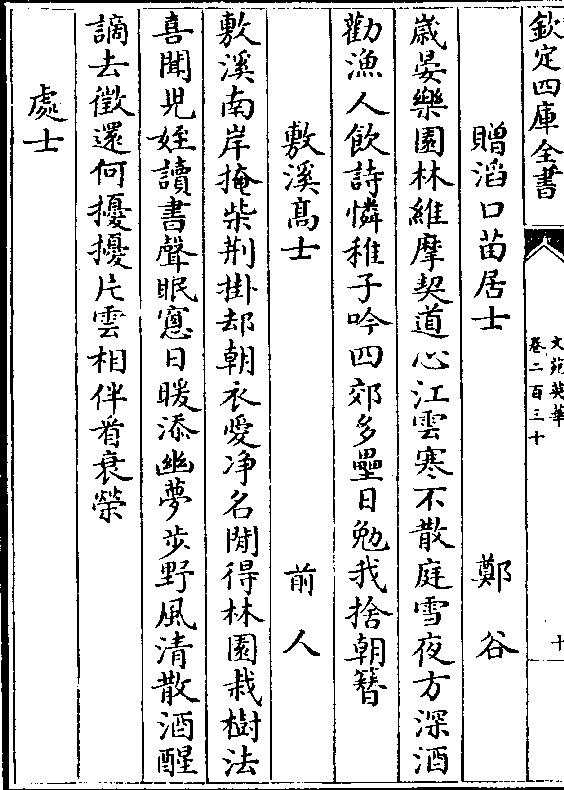 欽定四庫全書
文苑英華
卷二百三十
十
贈滔口苗居士 鄭谷
嵗晏樂園林維摩契道心江雲寒不散庭雪夜方深酒
勸漁人飲詩憐稚子吟四郊多壘日勉我捨朝簪
敷溪髙士 前人
敷溪南岸掩柴荆掛却朝衣愛浄名閒得林園栽樹法
喜聞児姪讀書聲眠窻日暖添幽夢步野風清散酒醒
謫去徵還何擾擾片雲相伴看衰榮
處士